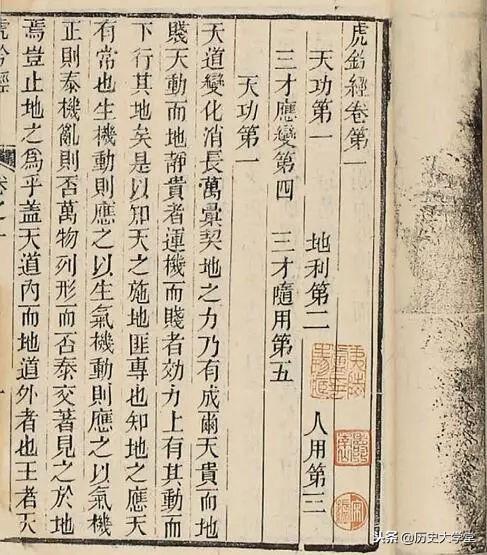 虎鈐經卷第一
天功第一　地利第二　人用第三
三才應變第四　三才隨用第五
天功第一
天道變化消長萬彙契地之力乃有成爾天貴而地
賤天動而地靜貴者運機而賤者効力上有其動而
下行其地矣是以知天之施地匪專也知地之應天
有常也生機動則應之以生氣機動則應之以氣機
正則泰機亂則否萬物列形而否泰交著見之於地
焉豈止地之為乎蓋天道內而地道外者也王者天
虎鈐經　卷之一
头条 @历史大学堂